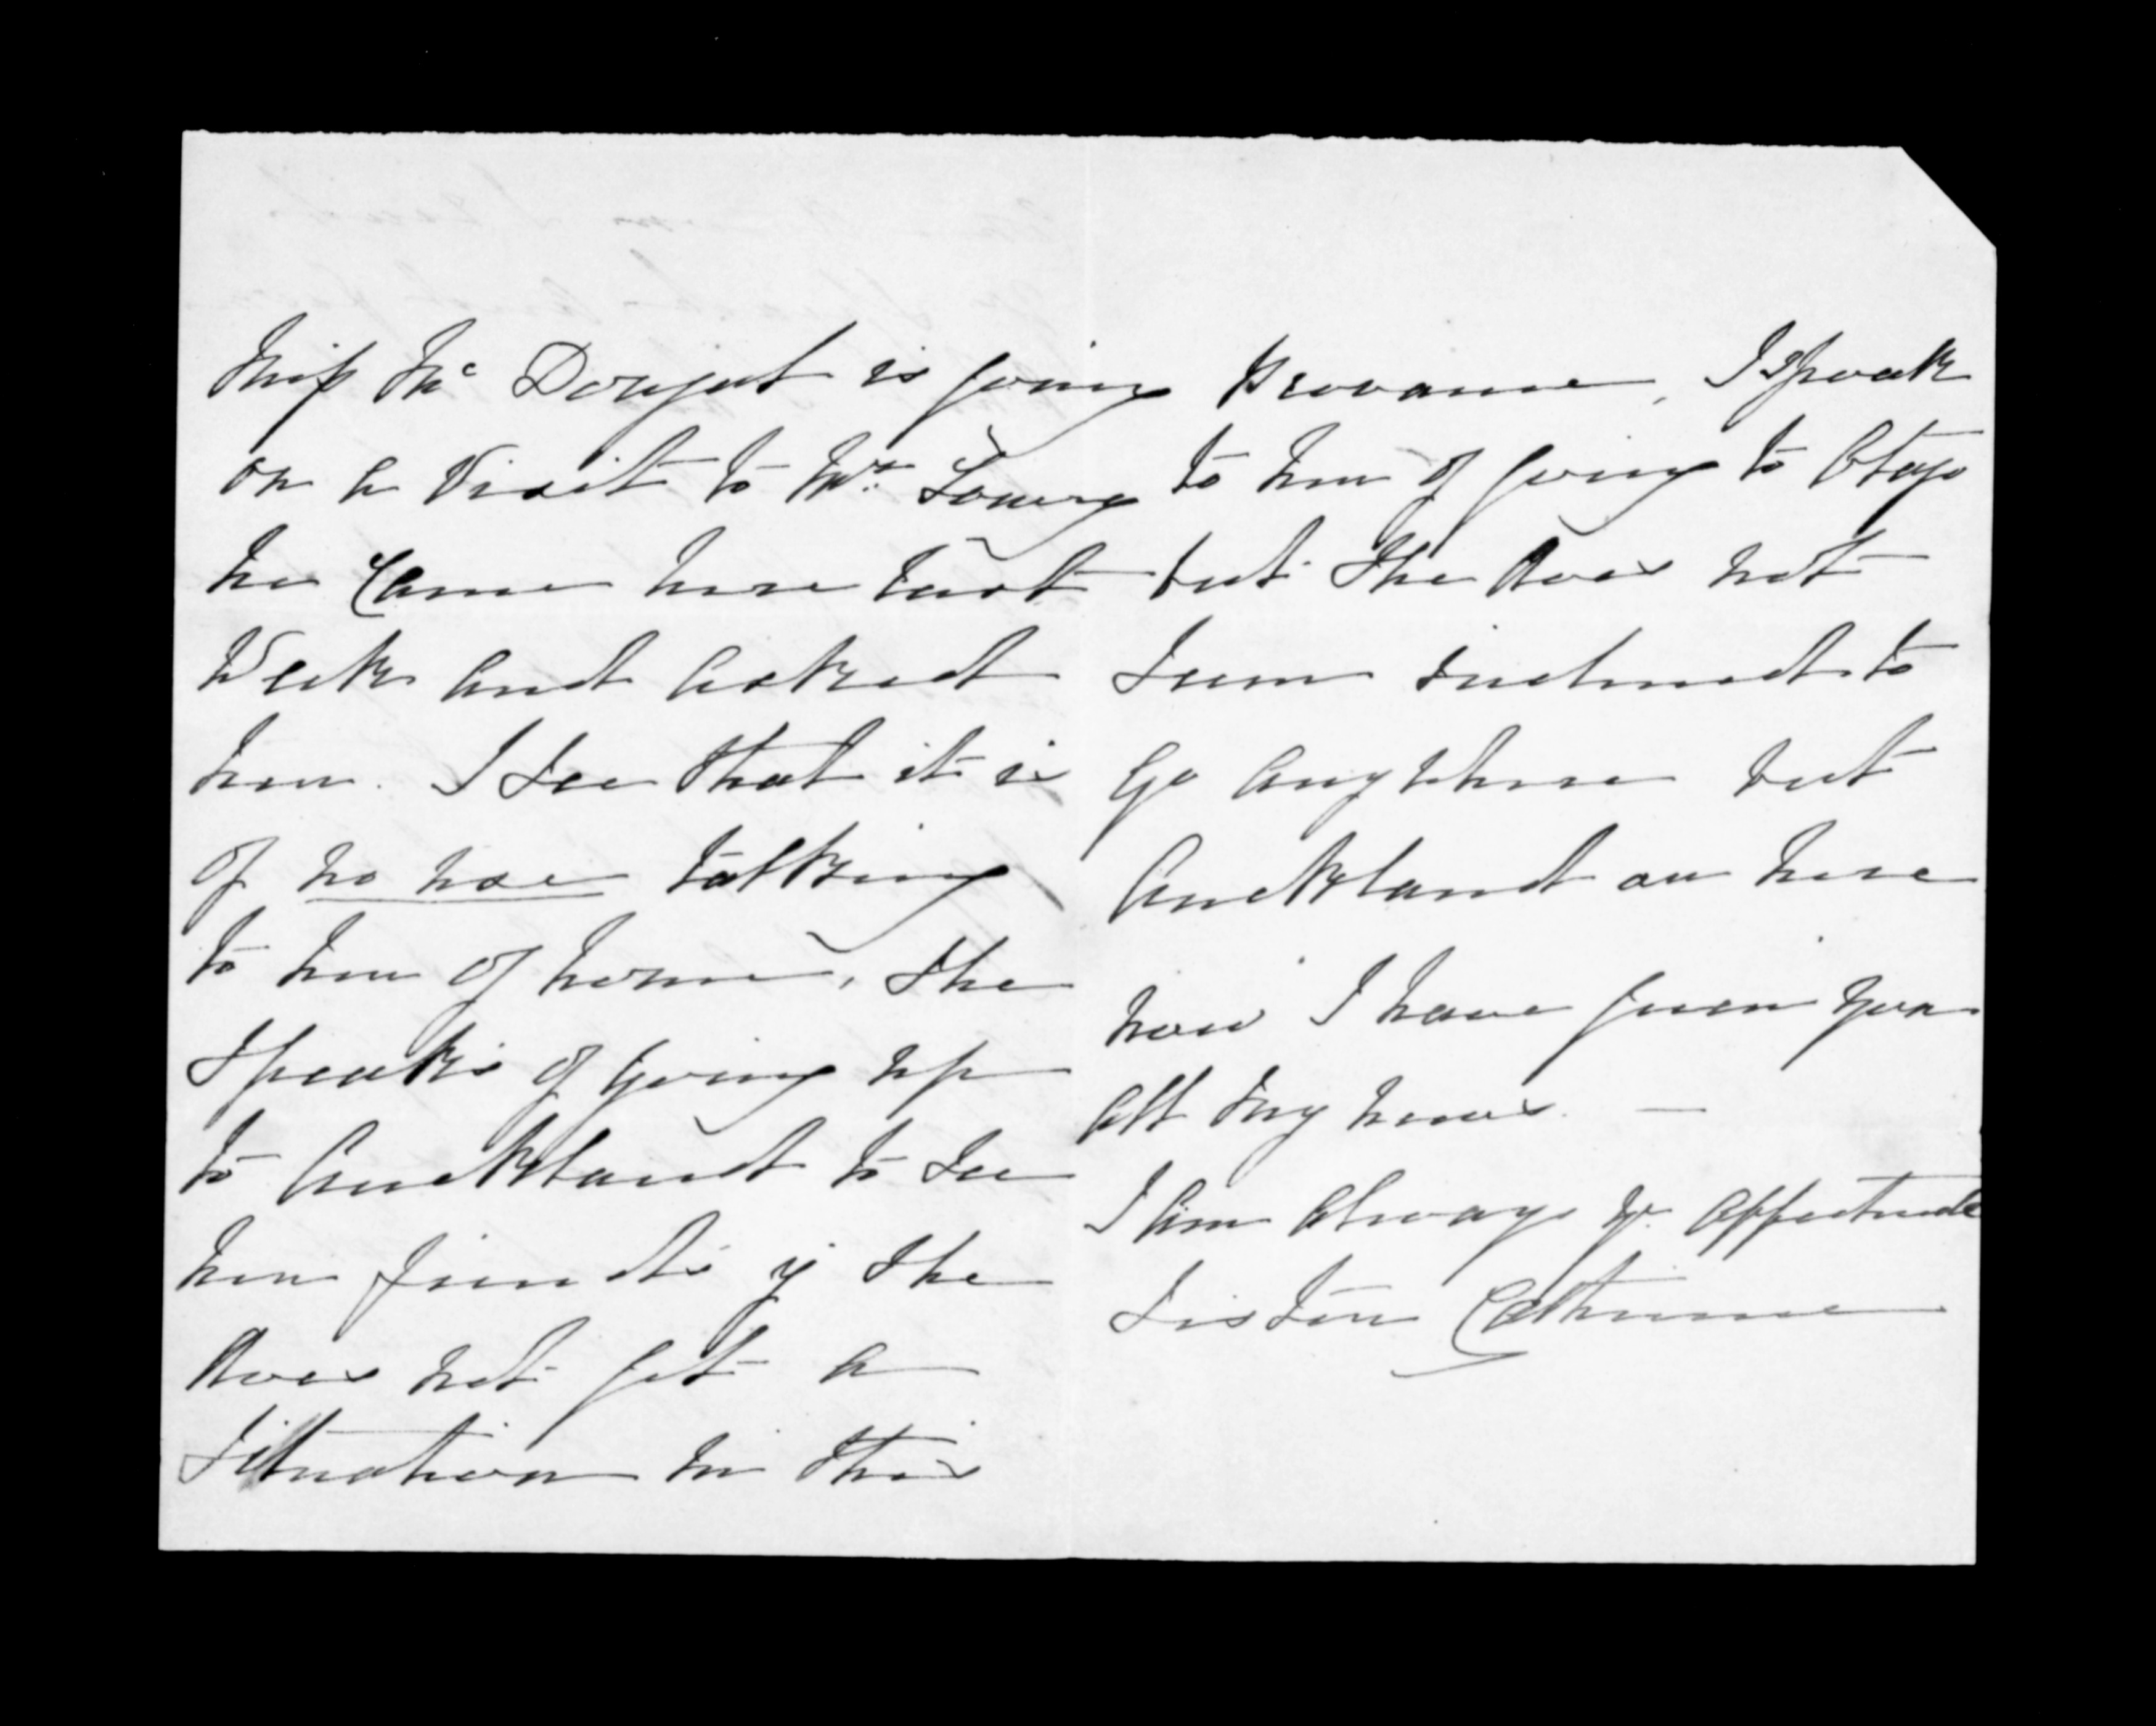 Miss Mc Dougal is going
on a visit to Mrs Lowry
he came here last
week and asked
her. I see that it is
of no use talking
to her of home, she
speaks of going up
to Auckland to see
her friends if she
does not get a
situation in this
Provance, I speak
to her of going to Otago
but she does not
seem inclined to
go any where but
Auckland or here
now I have given you
all my news. —
I am always yr affectnate
Sister Catherine